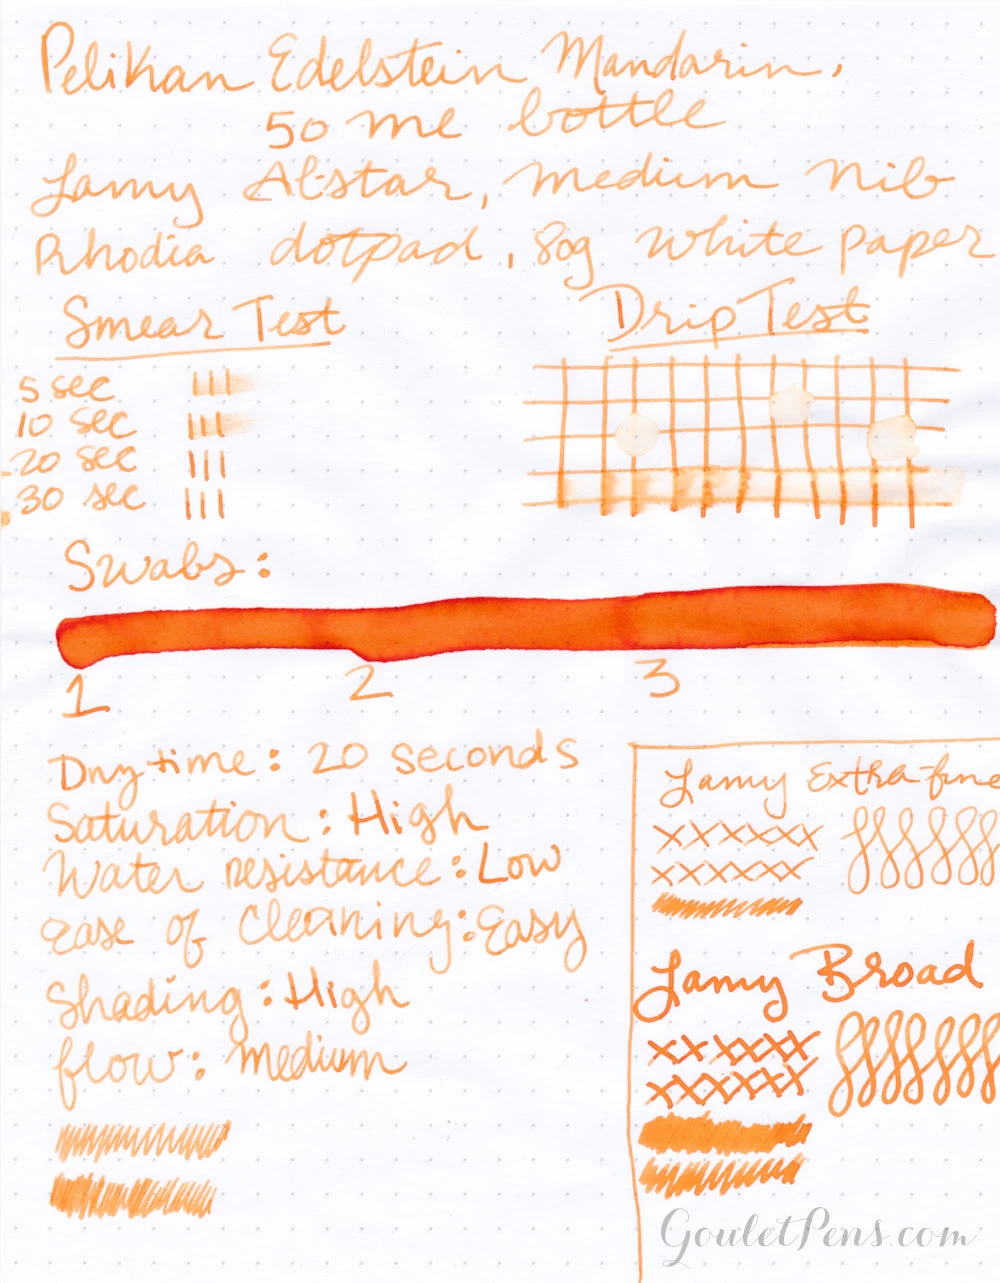 Pelikan Edelstein Mandarin,
50 ml bottle
Lamy Al-star, medium nib
Rhodia dotpad, 80g white paper
Smear Test
5 sec
10 sec
20 sec
30 sec
Drip Test
Swabs:
1 2 3
Dry time: 20 seconds
Saturation: High
Water resistance: Low
ease of cleaning: Easy
Shading: High
flow: medium
Lamy Extra-fine
xxxxxx
xxxxxx
Lamy Broad
xxxxxx
xxxxxx
GouletPens.com